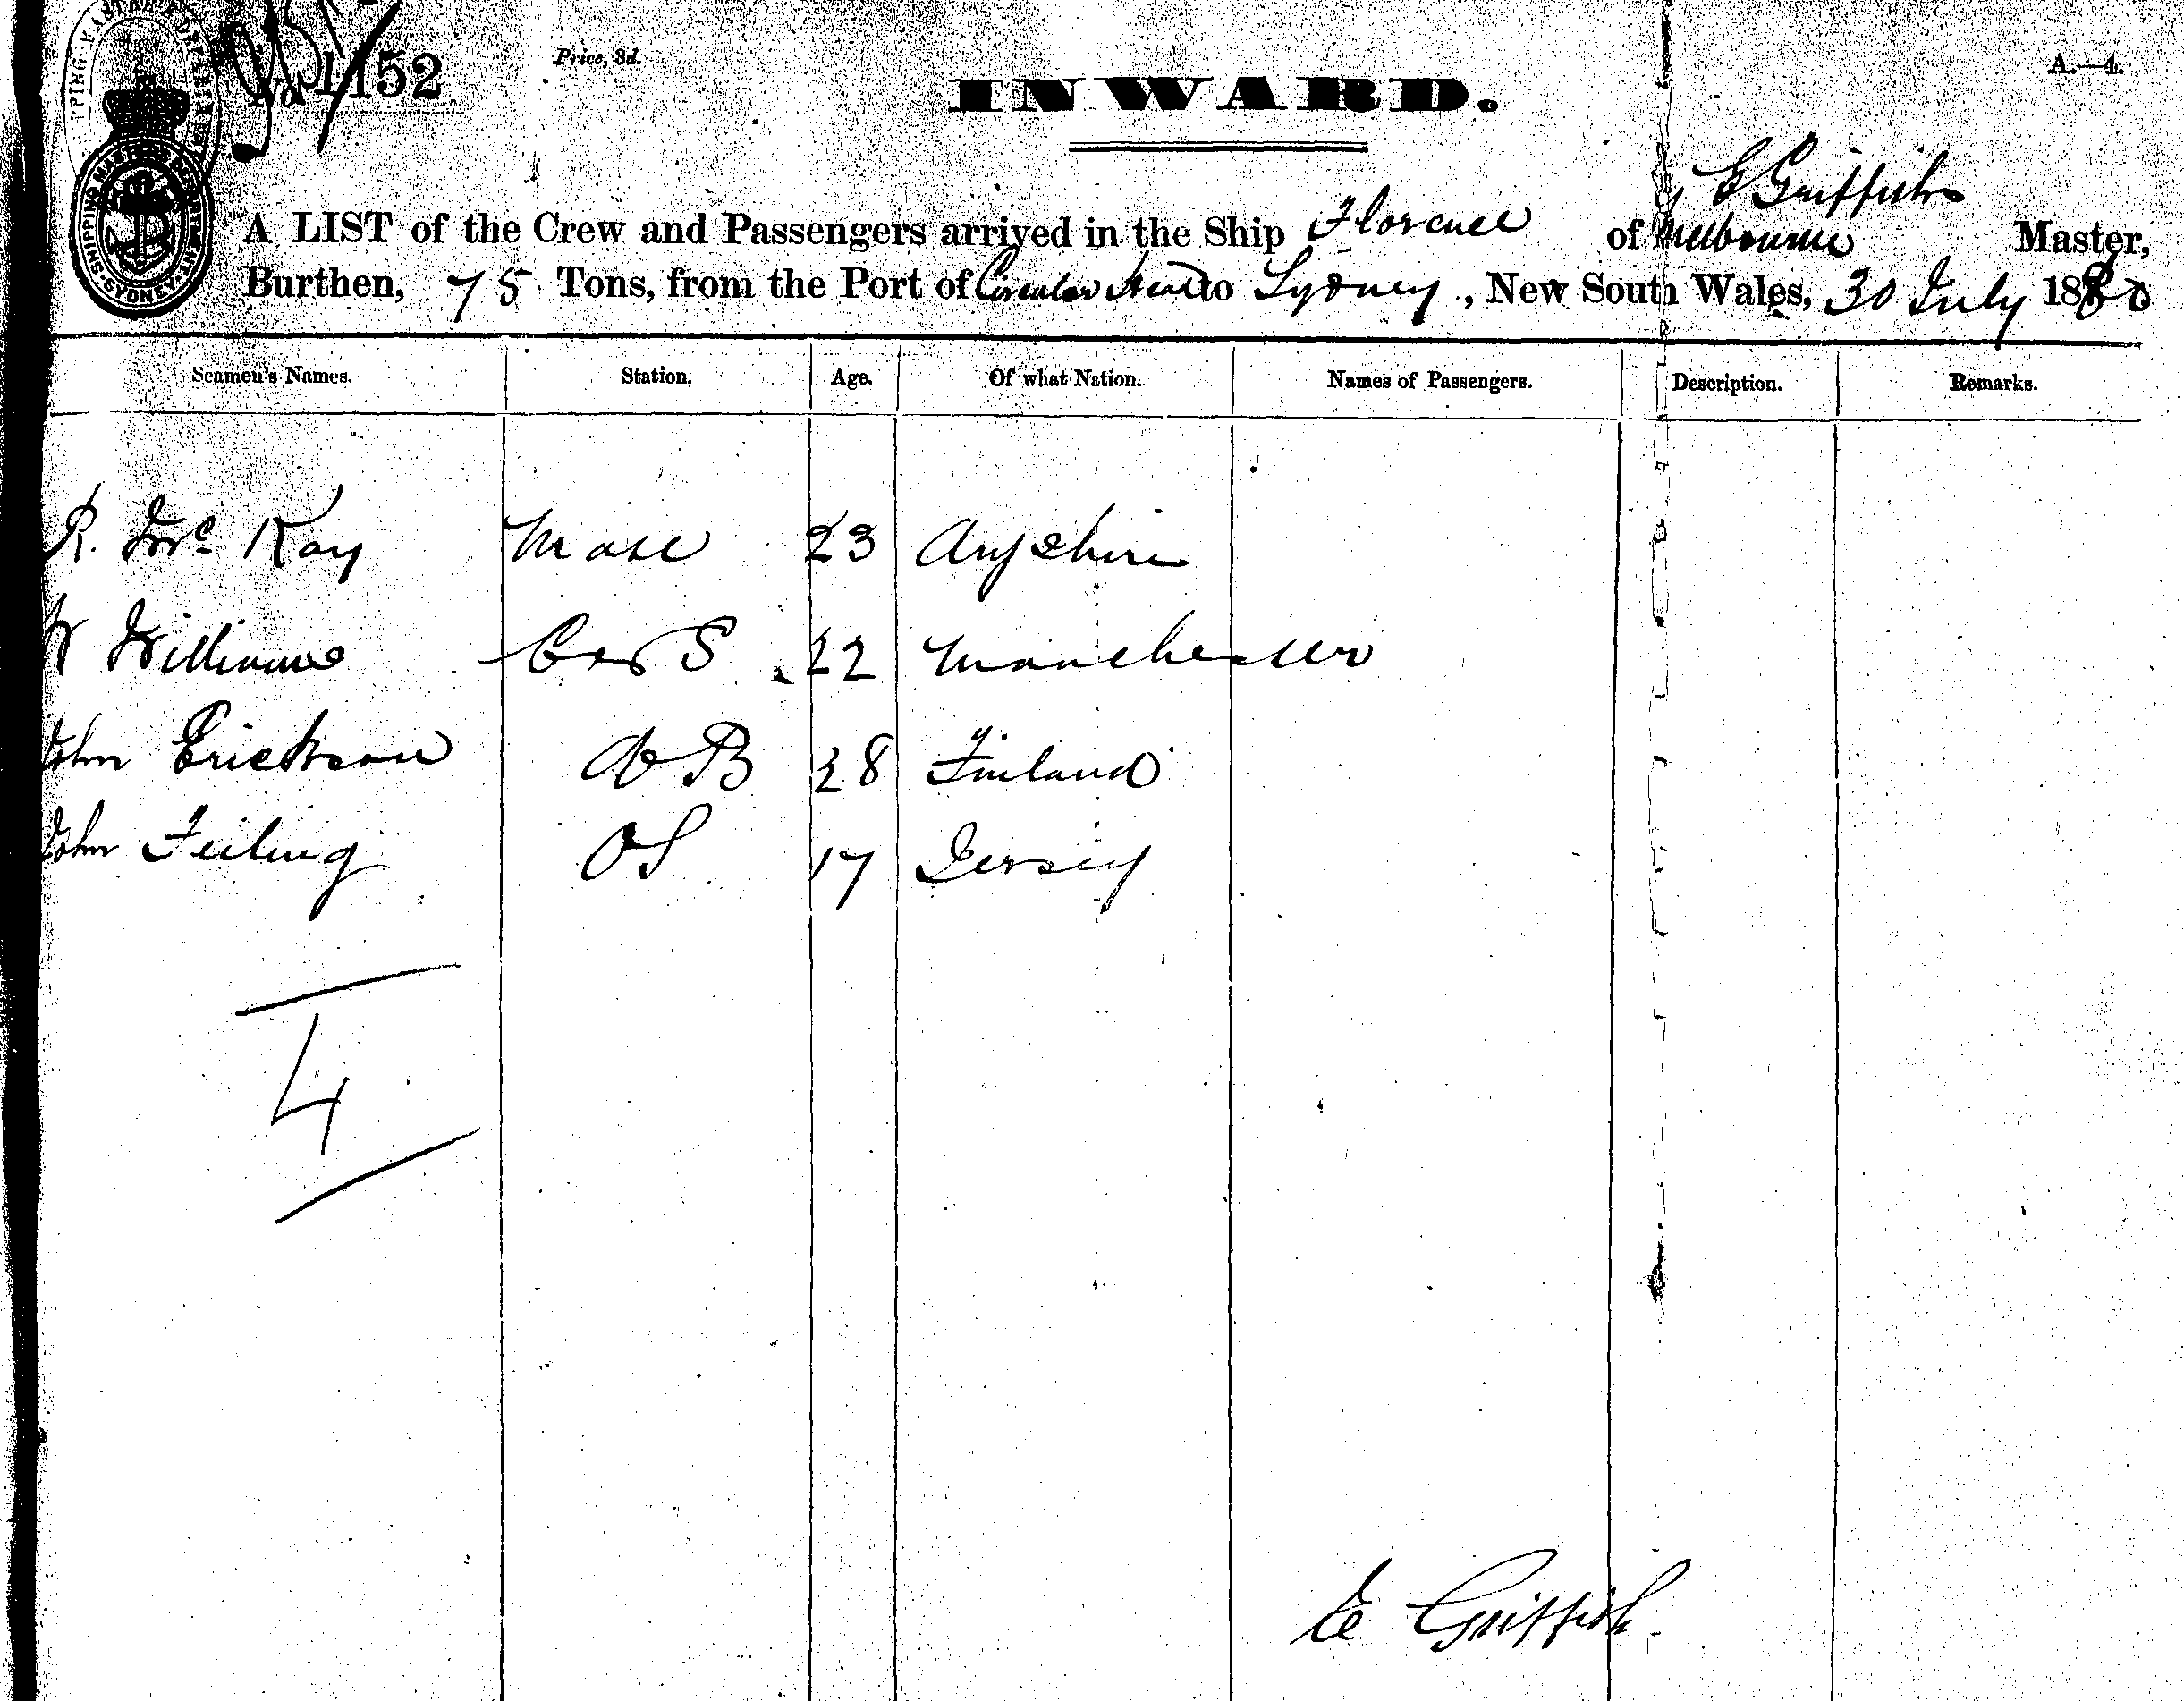 1152
Price, 3d.
A.—4.
INWARD.
E Griffiths
A LIST of the Crew and Passengers arrived in the Ship Florence of Melbourne Master,
Burthen, 75 Tons, from the Port of Circular Head to Sydney, New South Wales, 30 July 1880
SHIPPING MASTER'S DEPARTMENT SYDNEY
Seamen's Names. Station. Age. Of what Nation. Names of Passengers. Description. Remarks.
R. McKay Mate 23 Ayshire
W Williams C & S 22 Manchester
John Erickson AB 28 Finland
John Feiling OS 17 Jersey
4
E Griffith